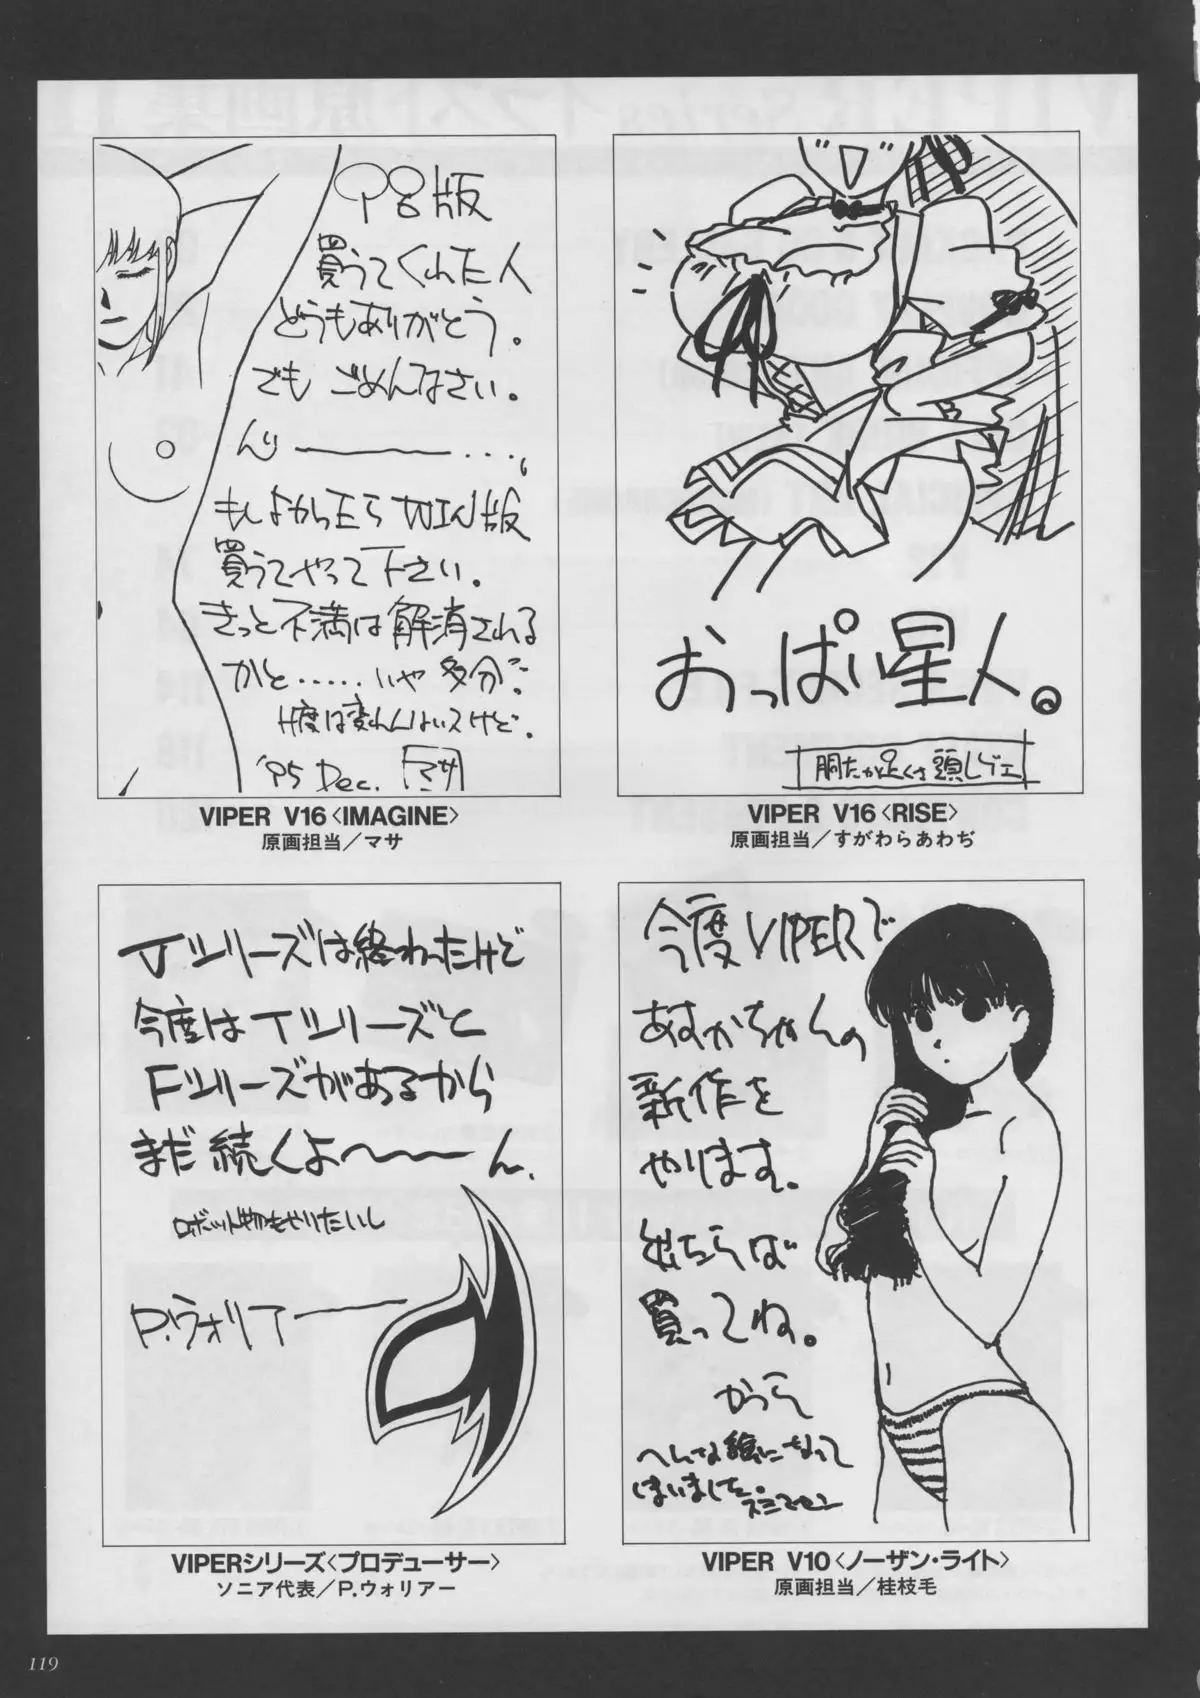 P98版
買ってくれた人
どうもありがとう。
でも ごめんなさい。
もしよかったら WIN版
買ってやって下さい。
きっと不満は解消される
かと……いや 多分…?
'95 Dec. マサ
VIPER V16〈IMAGINE〉
原画担当／マサ
おっぱい星人。
VIPER V16〈RISE〉
原画担当／すがわらあわぢ
Jシリーズは終わったけど
今度はTシリーズと
Fシリーズがあるから
まだ続くよ〜〜〜ん、
ロボット物もやりたいし
P.ウォリアー
VIPERシリーズ〈プロデューサー〉
ソニア代表／P.ウォリアー
今度VIPERで
あすかちゃんの
新作を
やります。
出たらば
買ってね。
かつら
へんな絵になって
しまいました。スミマセン
VIPER V10〈ノーザン・ライト〉
原画担当／桂枝毛
119